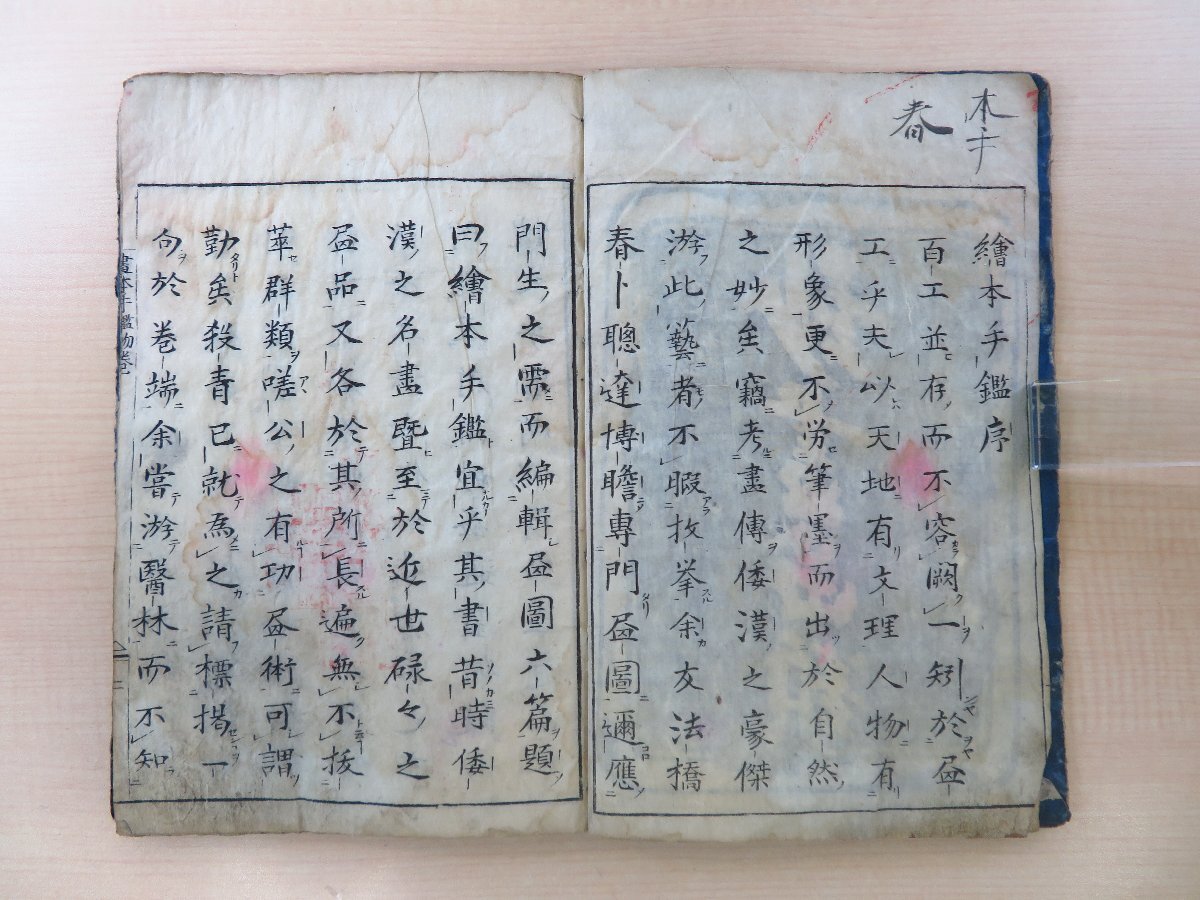 本手
春
繪本手鑑序
百工並存而不容闕一矧於畵
工乎夫以天地有文理人物有
形象更不労筆墨而出於自然
之妙矣竊考畵傳倭漢之豪傑
游此藝者不暇枚挙余友法橋
春卜聰達博瞻專門畵圖邇應
門生之需而編輯畵圖六篇題
曰繪本手鑑宜乎其書昔時倭
漢之名畵曁至於近世碌々之
畵品又各於其所長遍無不拔
萃群類嗟公之有功畵術可謂
勤矣殺青已就為之請標掲一
向於巻端余嘗游醫林而不知
畫本手鑑初巻